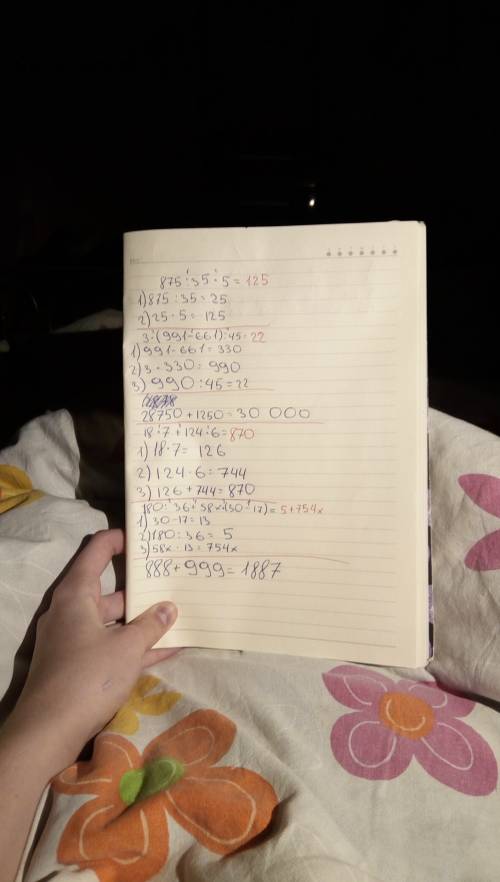 875 : 35 · 5 = 125
1) 875 : 35 = 25
2) 25 · 5 = 125
3 · (991 - 661) : 45 = 22
1) 991 - 661 = 330
2) 3 · 330 = 990
3) 990 : 45 = 22
28750 + 1250 = 30 000
18 · 7 + 124 · 6 = 870
1) 18 · 7 = 126
2) 124 · 6 = 744
3) 126 + 744 = 870
180 : 36 + 58x · (30 - 17) = 5 + 754x
1) 30 - 17 = 13
2) 180 : 36 = 5
3) 58x · 13 = 754x
888 + 999 = 1887